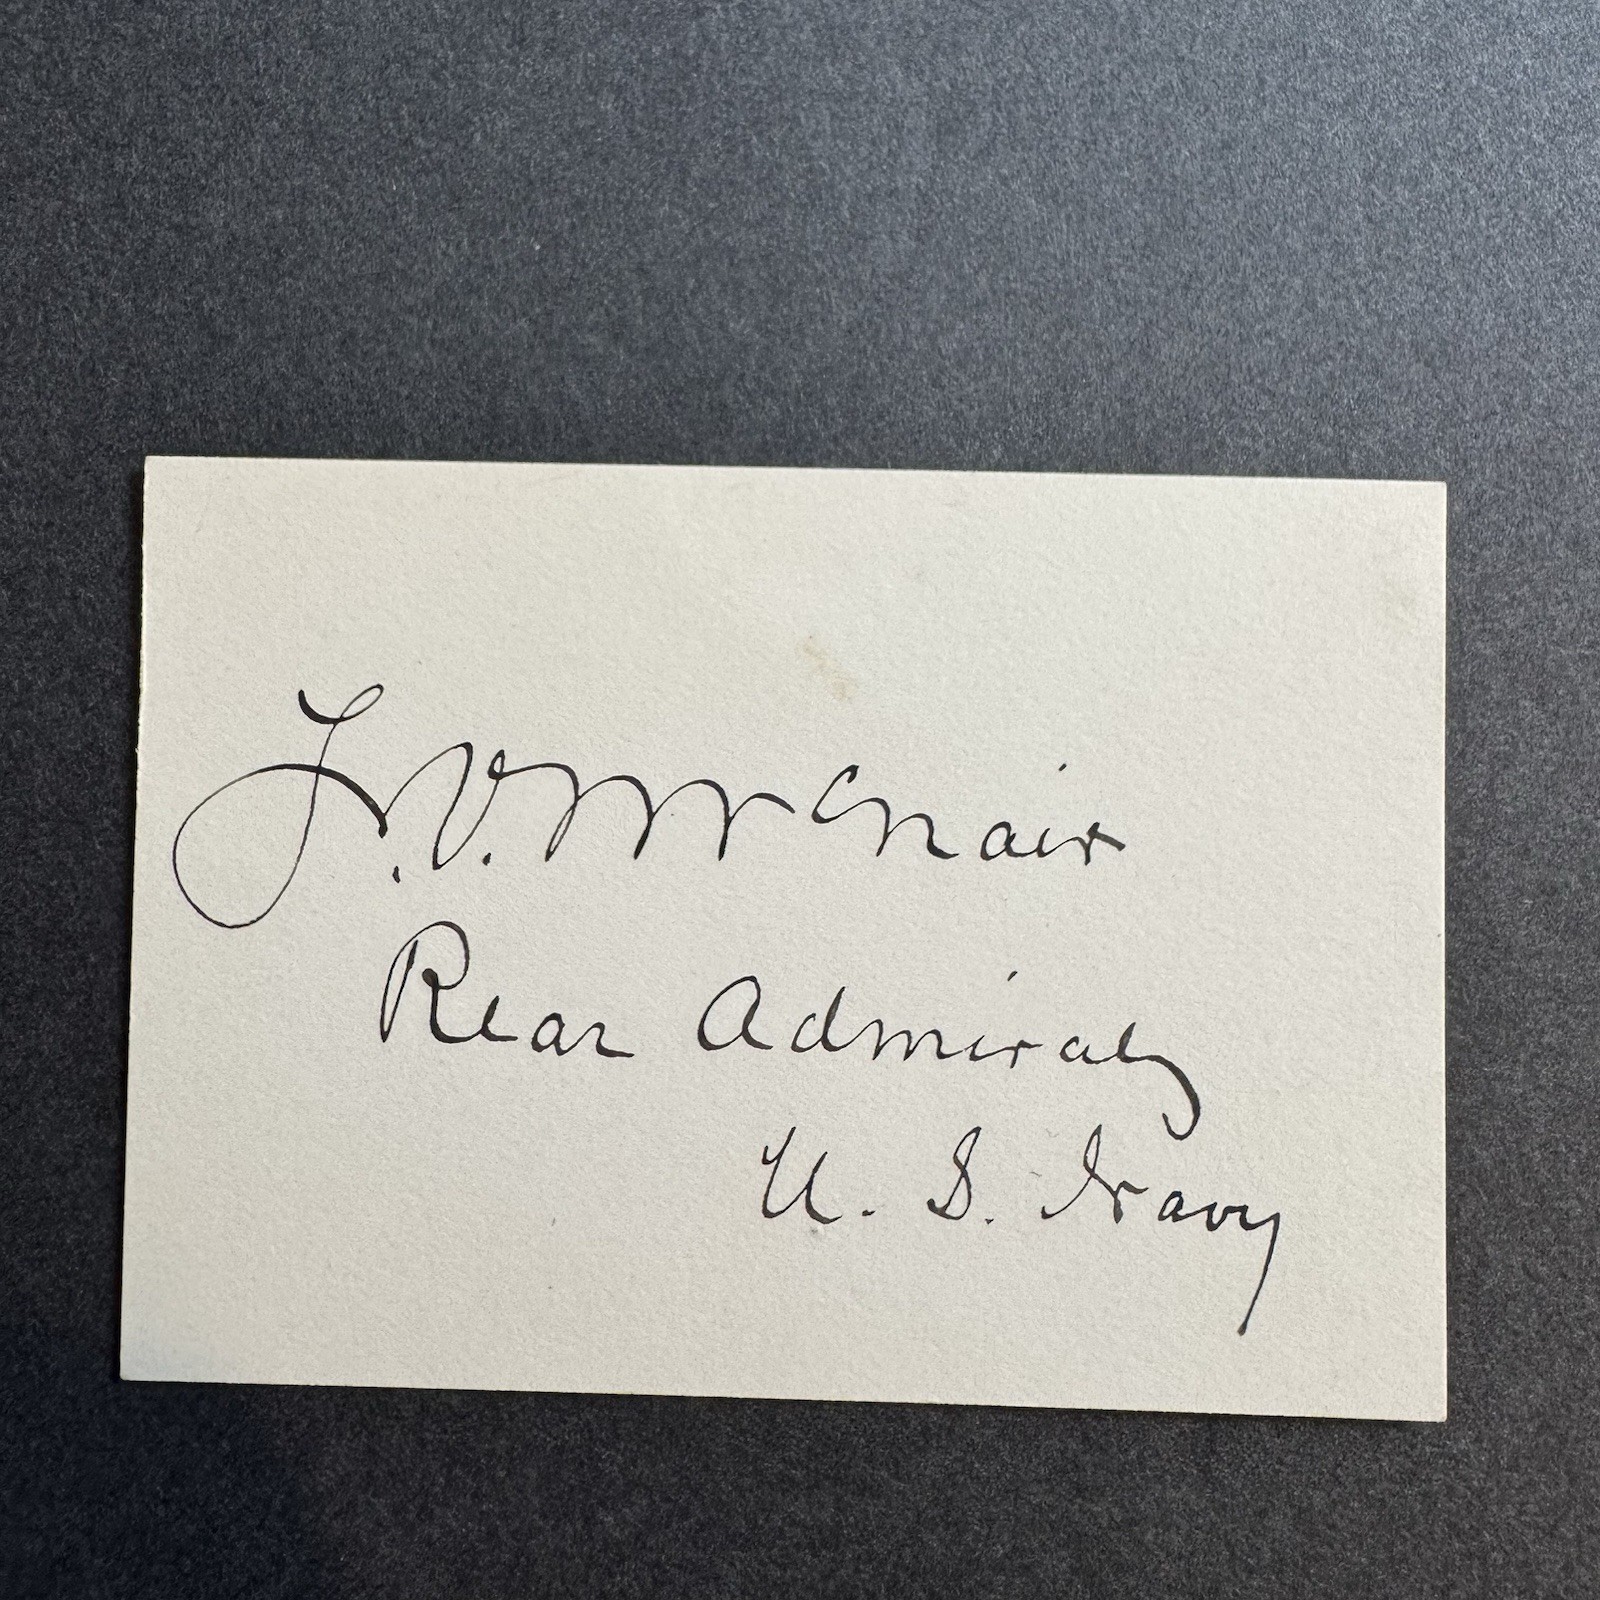 F. V. McNair
Rear Admiral,
U. S. Navy